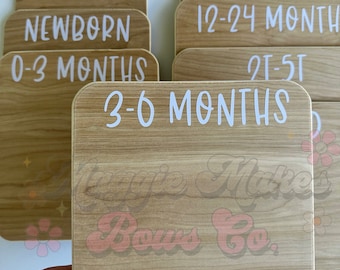 NEWBORN
0-3 MONTHS
12-24 MONTHS
2T-5T
3-6 MONTHS
Maggie Makes
Bows Co.